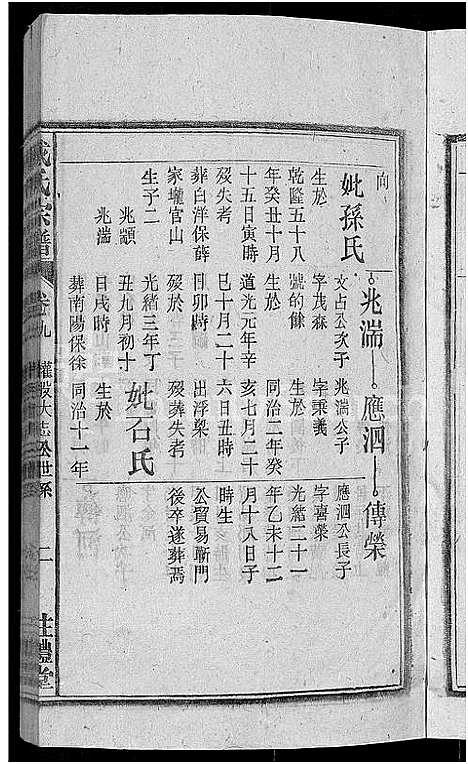 向
妣孫氏
生於
乾隆五十八
年癸丑十月
十五日寅時
歿失考
葬白洋保薛
家壠官山
生子二
兆顓
兆湍
兆湍
文占公次子
字茂森
號的餘
生於
道光元年辛
巳十月二十
日卯時
歿於
光緒三年丁
丑九月初十
日戌時
葬南陽保徐
應泗
兆湍公子
字秉義
生於
同治二年癸
亥七月二十
六日丑時
歿葬失考
妣石氏
生於
同治十一年
傳榮
應泗公長子
字喜榮
光緒二十一
年乙未十二
月十八日子
時生
公貿易蘄門
出浮梁
後卒遂葬焉
氏宗譜
卷九
權股大志公世系
二